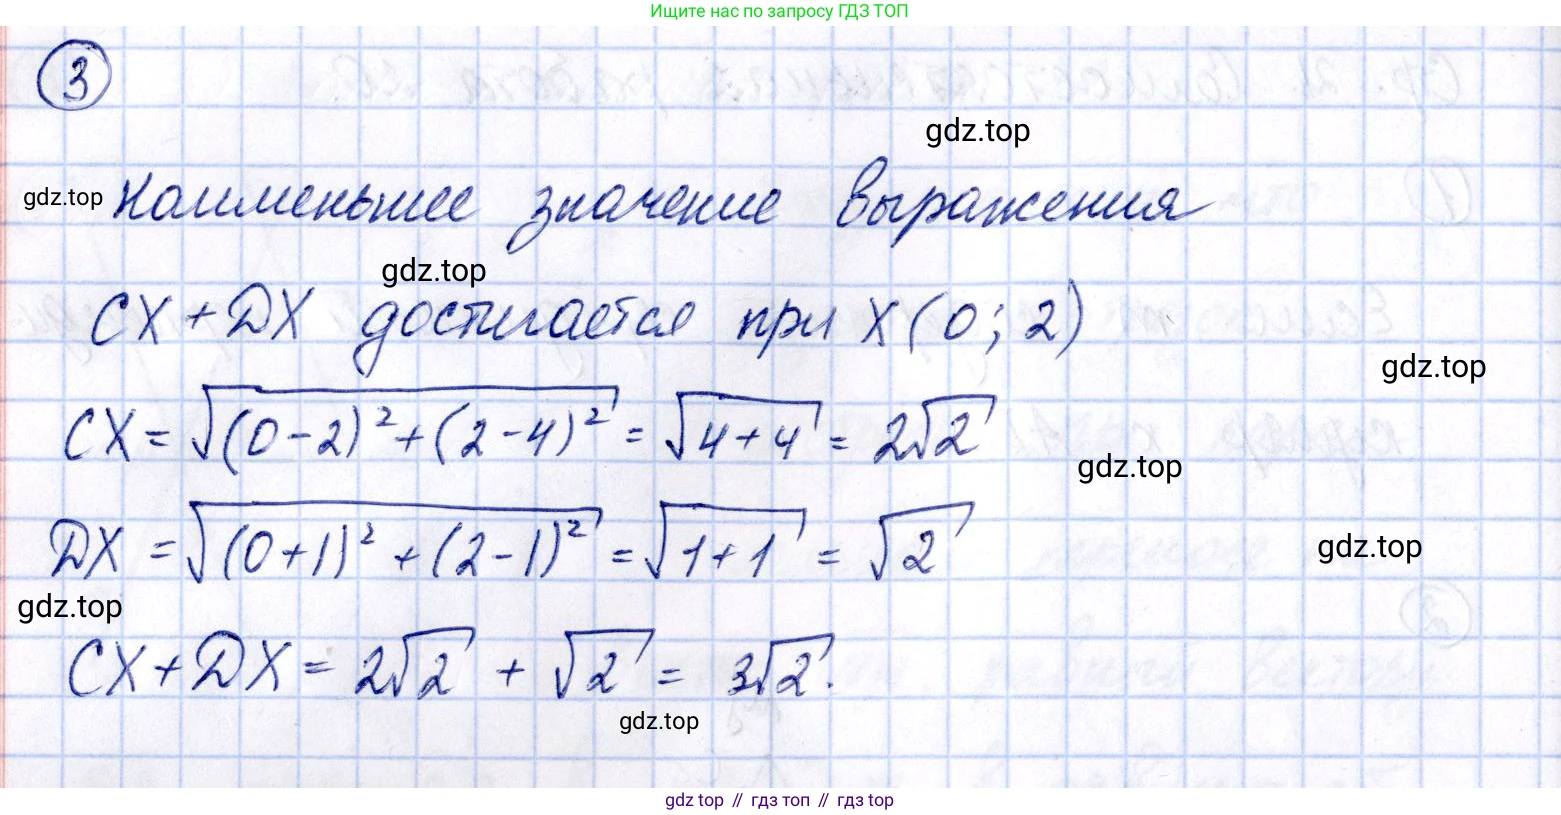 Ищите нас по запросу ГДЗ ТОП
3
gdz.top
gdz.top Наименьшее значение выражения
gdz.top
CX + DX достигается при X(0; 2)
gdz.top
CX = √((0-2)² + (2-4)²) = √(4+4) = 2√2
gdz.top
DX = √((0+1)² + (2-1)²) = √(1+1) = √2
gdz.top
gdz.top
CX + DX = 2√2 + √2 = 3√2.
gdz.top
gdz top // гдз топ // гдз top